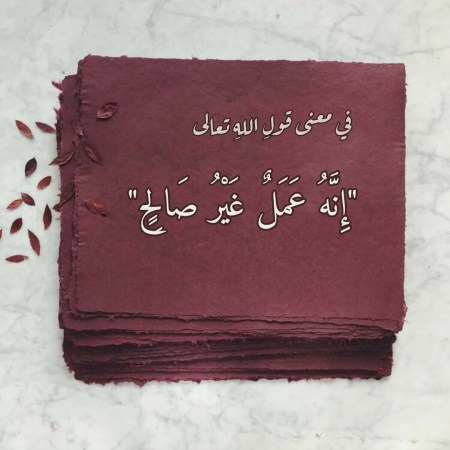 في معنى قولِ اللهِ تعالى
"إِنَّهُ عَمَلٌ غَيْرُ صَالِحٍ"